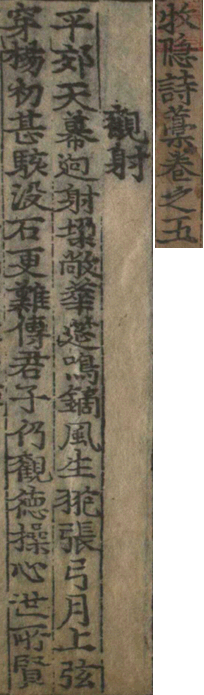 牧隐詩藁卷之五
觀射
平郊天幕逈射堋敞華莚鳴鏑風生䎉張弓月上弦
穿楊初甚駭没石更難傳君子仍觀德操心世所賢